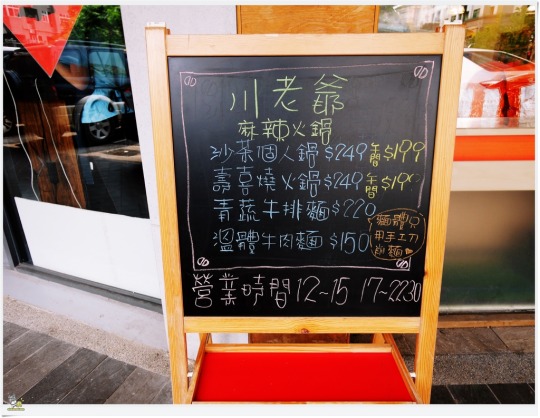 川老爺
麻辣火鍋
沙茶個人鍋$249 午間$199
壽喜燒火鍋$249 午間$199
青蔬牛排麵$220
溫體牛肉麵$150
麵體只
用手工刀
削麵
營業時間12~15 17~2230